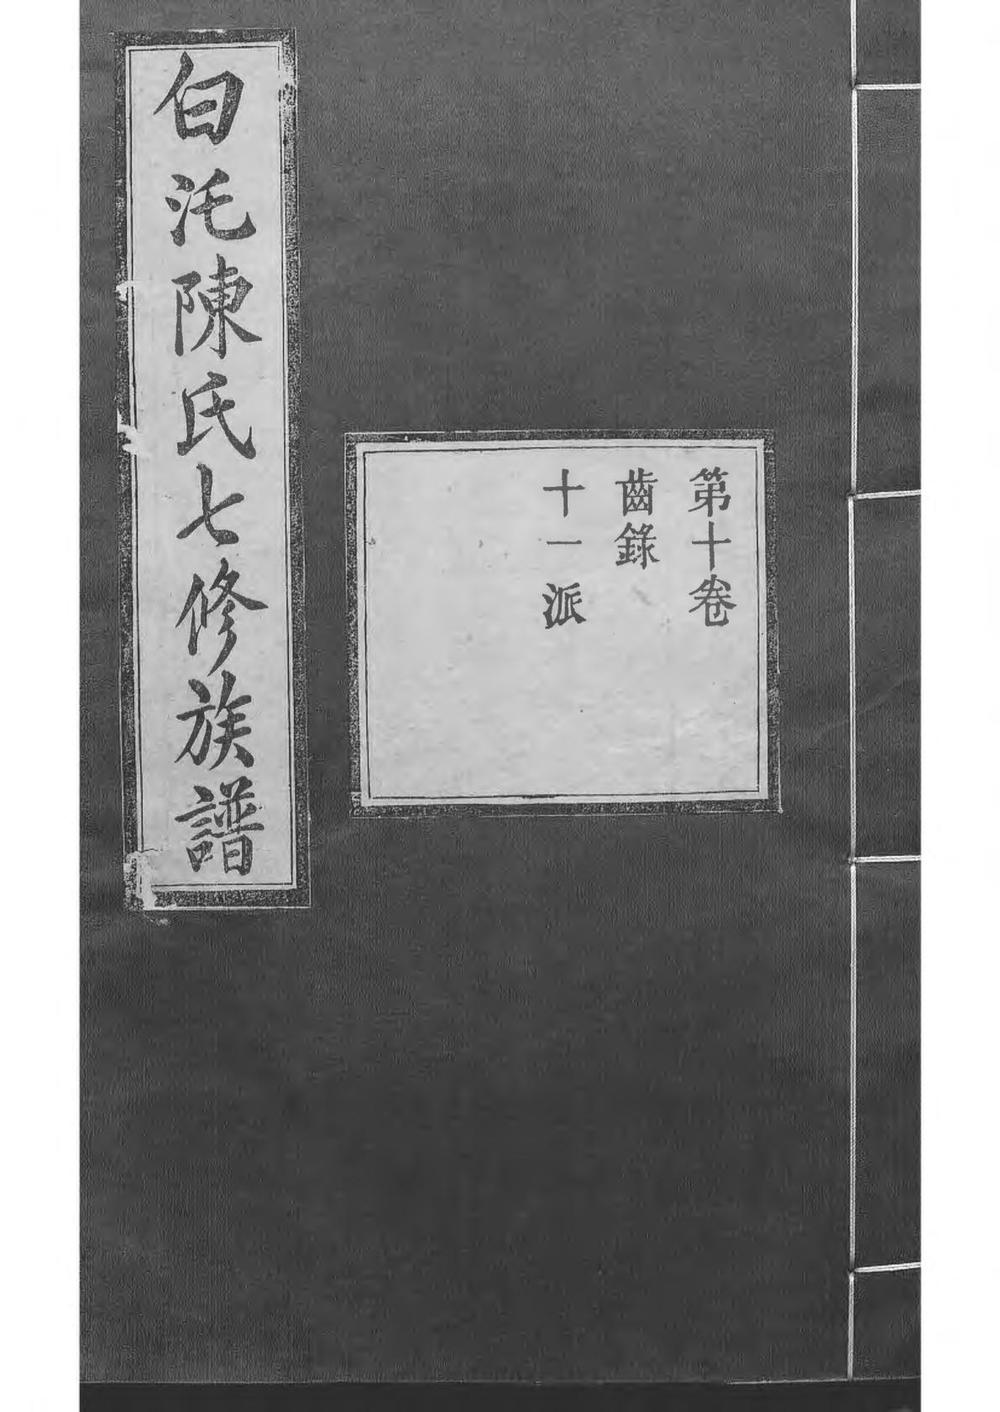 白汑陳氏七修族譜
第十卷
齒錄
十一派